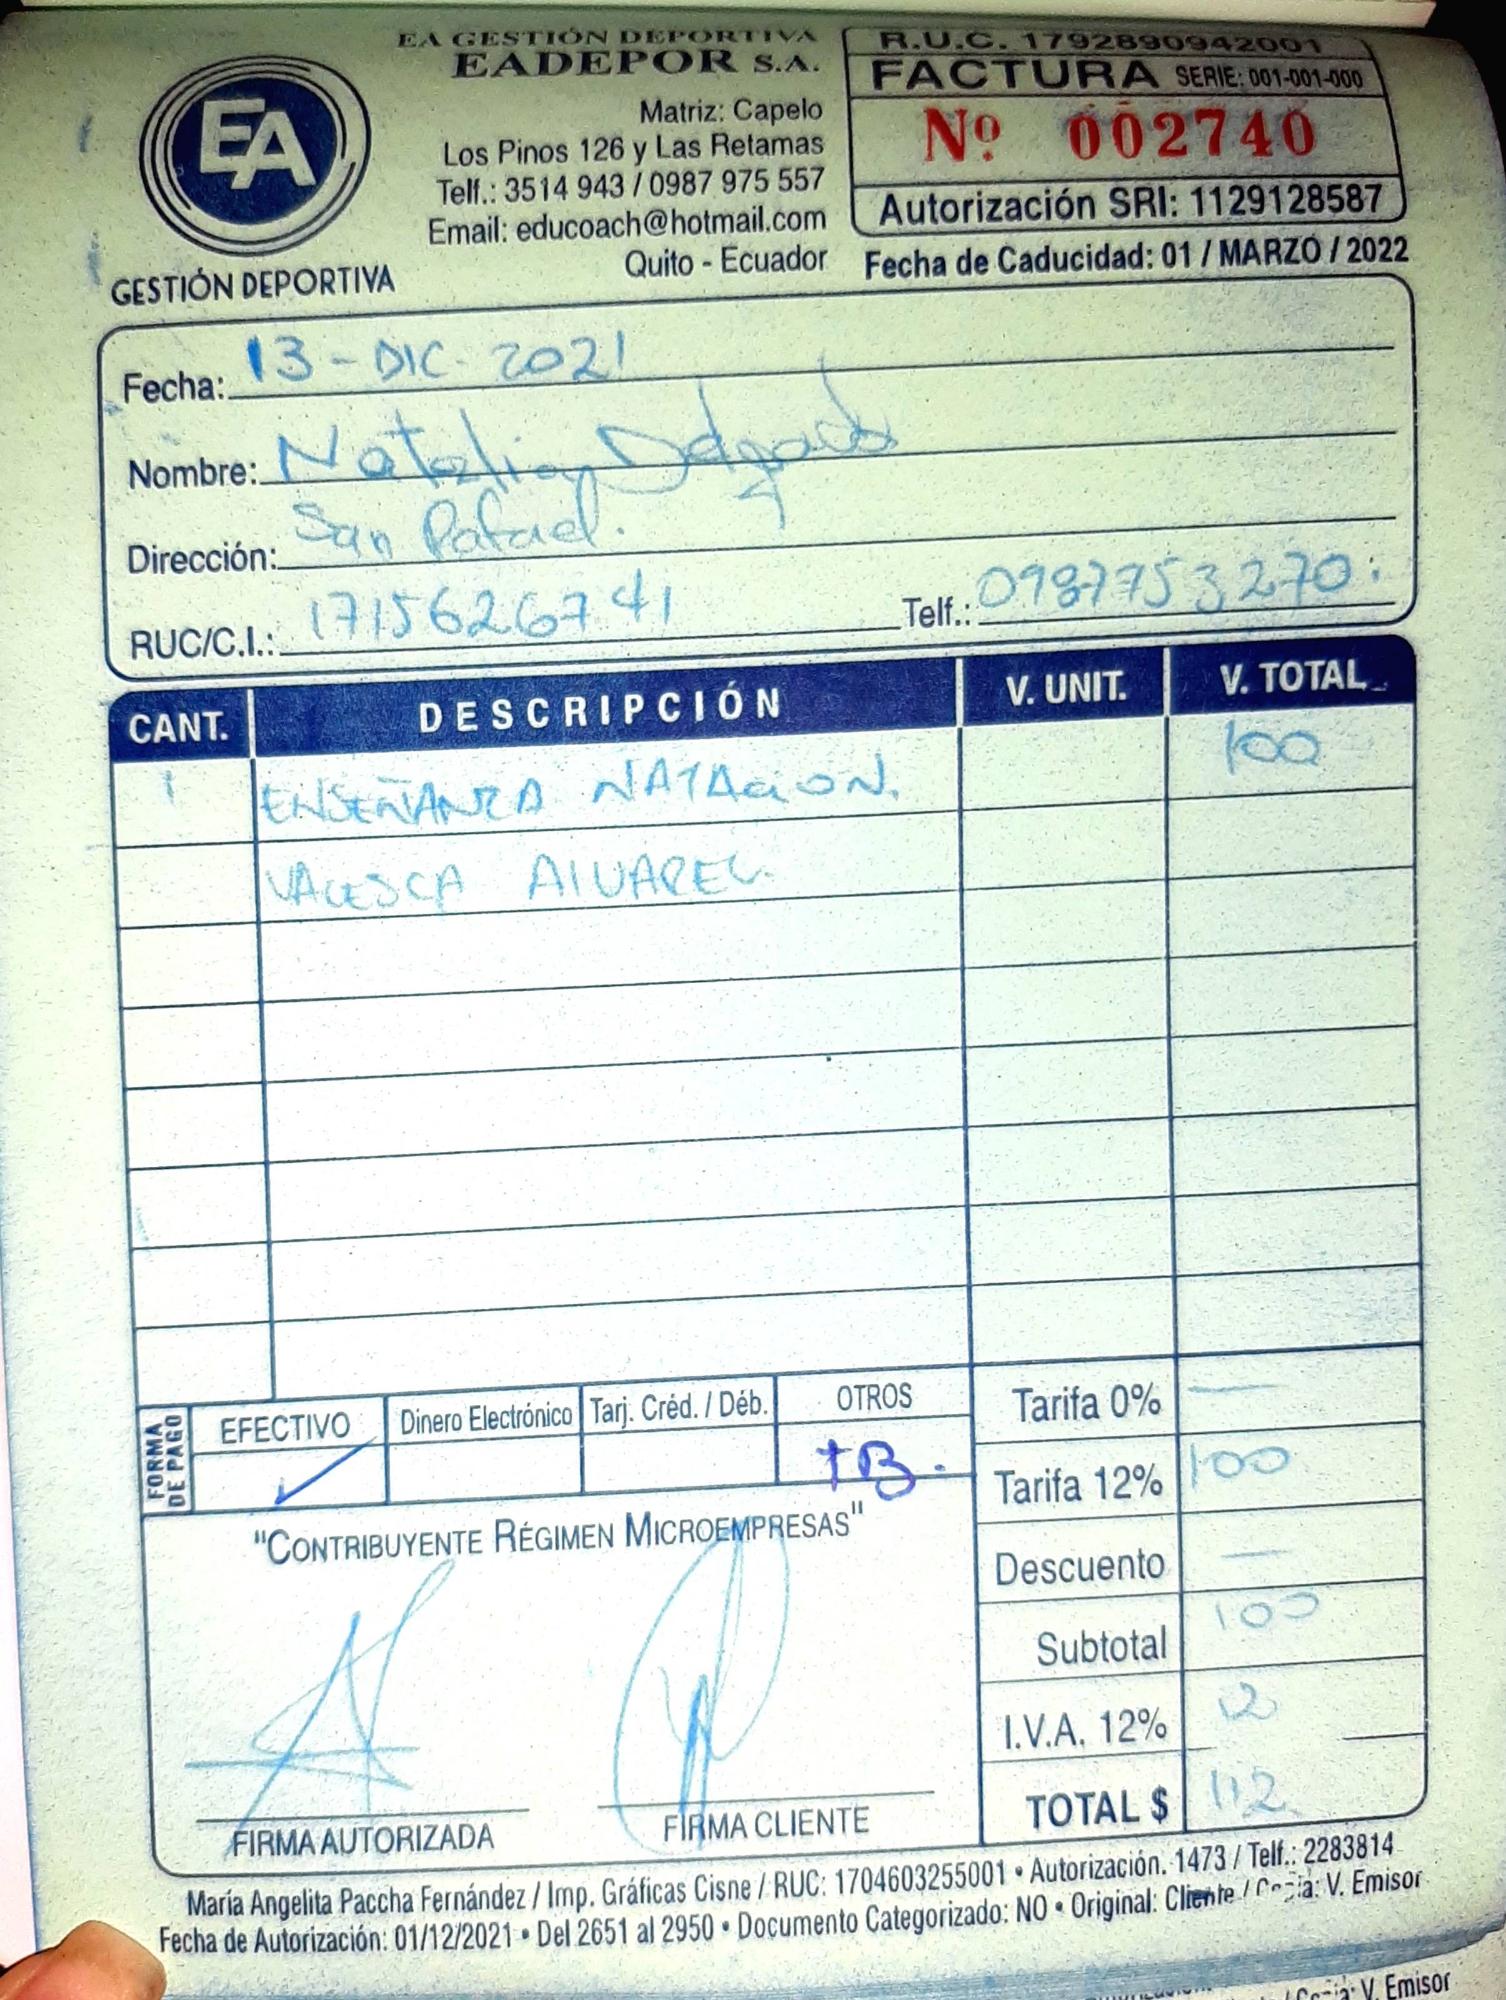 EA
GESTIÓN DEPORTIVA
EA GESTIÓN DEPORTIVA
EADEPOR S.A.
Matriz: Capelo
Los Pinos 126 y Las Retamas
Telf.: 3514 943 / 0987 975 557
Email: educoach@hotmail.com
Quito - Ecuador
R.U.C. 1792890942001
FACTURA SERIE: 001-001-000
Nº 002740
Autorización SRI: 1129128587
Fecha de Caducidad: 01 / MARZO / 2022
Fecha: 13 - DIC - 2021
Nombre: Natalia Delgado
Dirección: San Rafael.
RUC/C.I.: 1715626741 Telf.: 0987753270.
CANT. DESCRIPCIÓN V. UNIT. V. TOTAL
1 ENSEÑANZA NATACION. 100
VALESCA ALVAREZ.
FORMA DE PAGO
EFECTIVO Dinero Electrónico Tarj. Créd. / Déb. OTROS
✓ TB.
Tarifa 0% —
Tarifa 12% 100
Descuento —
Subtotal 100
I.V.A. 12% 12
TOTAL $ 112
"CONTRIBUYENTE RÉGIMEN MICROEMPRESAS"
FIRMA AUTORIZADA FIRMA CLIENTE
María Angelita Paccha Fernández / Imp. Gráficas Cisne / RUC: 1704603255001 • Autorización. 1473 / Telf.: 2283814
Fecha de Autorización: 01/12/2021 • Del 2651 al 2950 • Documento Categorizado: NO • Original: Cliente / Copia: V. Emisor
V. Emisor